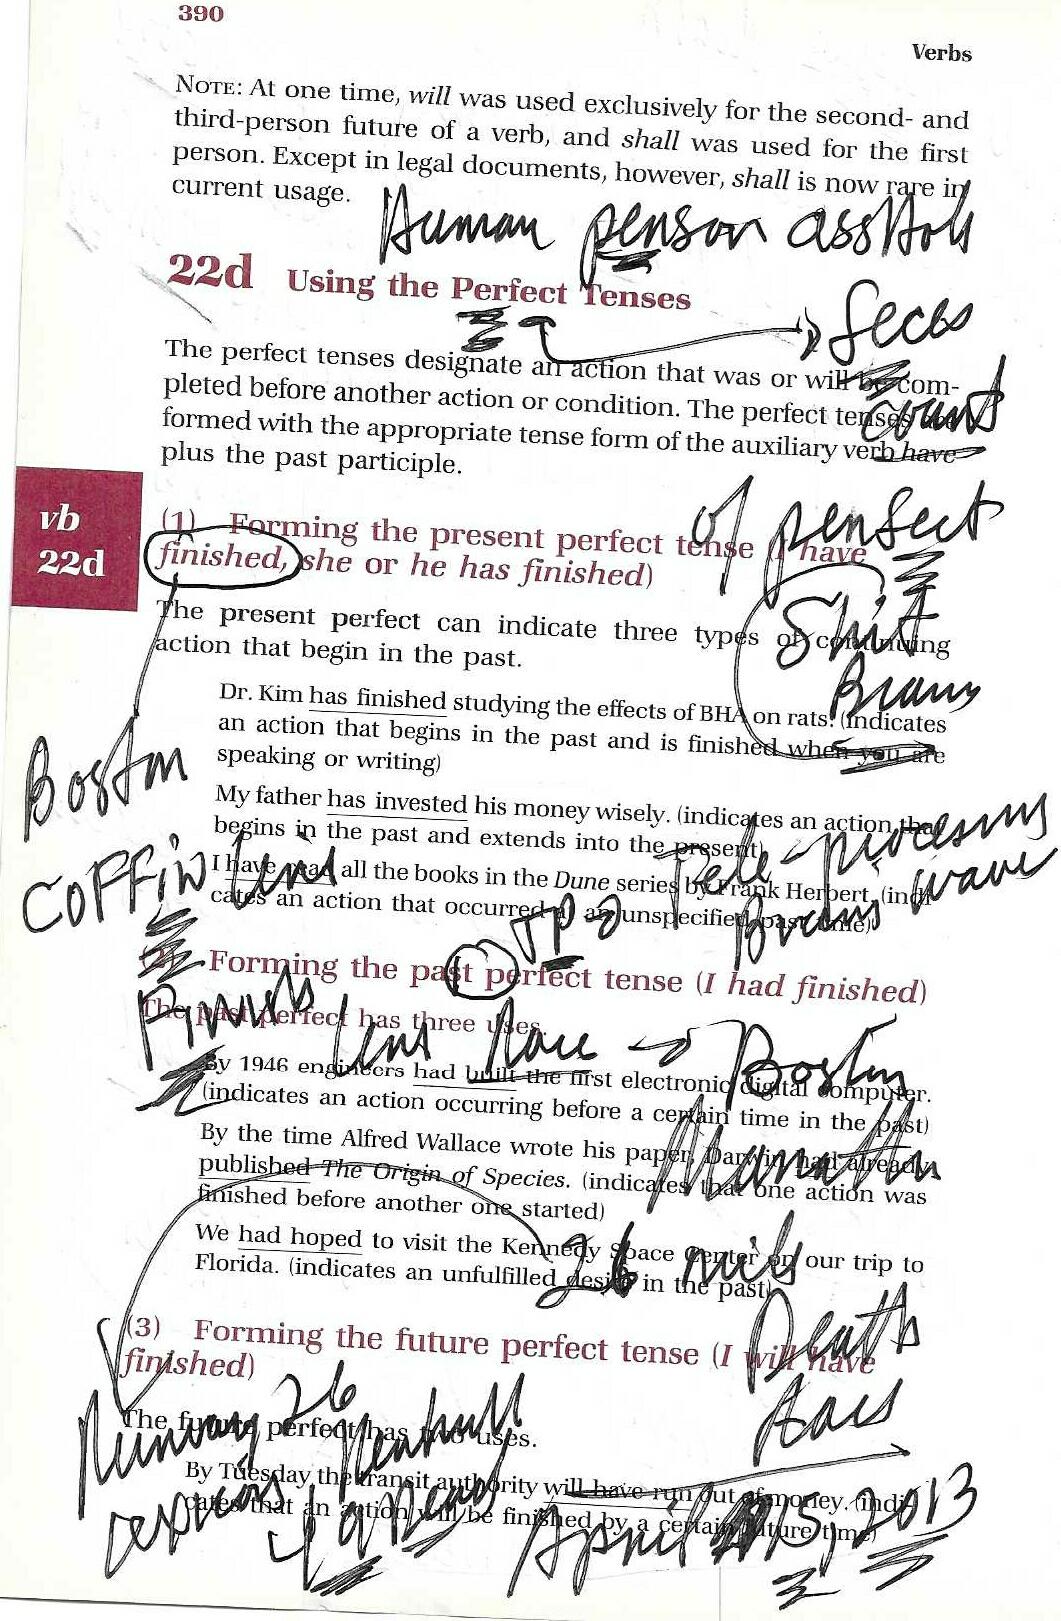 390
Verbs
NOTE: At one time, will was used exclusively for the second- and
third-person future of a verb, and shall was used for the first
person. Except in legal documents, however, shall is now rare in
current usage.
Human penson assHole
22d Using the Perfect Tenses
feces
The perfect tenses designate an action that was or will be com-
pleted before another action or condition. The perfect tenses are
count
formed with the appropriate tense form of the auxiliary verb have
plus the past participle.
vb
22d
of penfect
(1) Forming the present perfect tense (I have
finished, she or he has finished)
Shit
The present perfect can indicate three types of continuing
action that begin in the past.
Dr. Kim has finished studying the effects of BHA on rats. (indicates
an action that begins in the past and is finished when you are
speaking or writing)
Boston
My father has invested his money wisely. (indicates an action that
begins in the past and extends into the present)
COFFiN
I have read all the books in the Dune series by Frank Herbert. (indi-
cates an action that occurred at an unspecified past time)
wave
TP
(2) Forming the past perfect tense (I had finished)
The past perfect has three uses.
Race
Boston
By 1946 engineers had built the first electronic digital computer.
(indicates an action occurring before a certain time in the past)
By the time Alfred Wallace wrote his paper, Darwin had already
published The Origin of Species. (indicates that one action was
finished before another one started)
We had hoped to visit the Kennedy Space Center on our trip to
Florida. (indicates an unfulfilled desire in the past)
26 mils
Death
(3) Forming the future perfect tense (I will have
finished)
Runway 26
The future perfect has two uses.
By Tuesday the transit authority will have run out of money. (indi-
cates that an action will be finished by a certain future time)
4 Dead
April 15, 2013